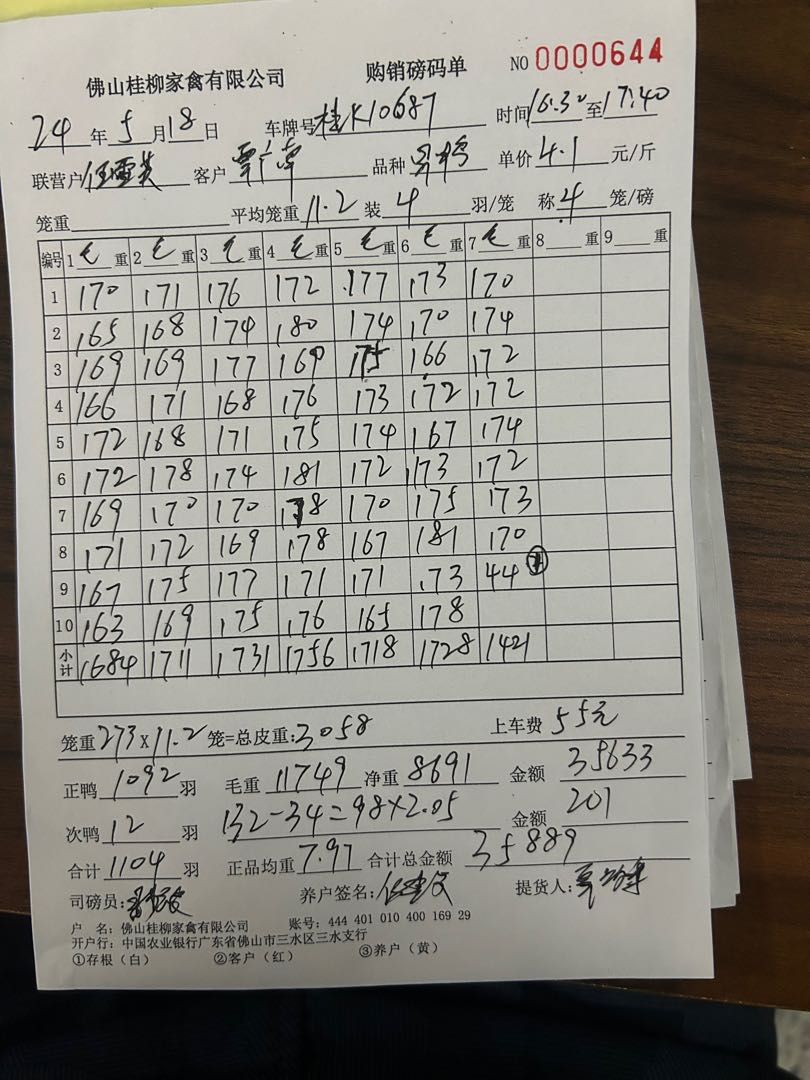 佛山桂柳家禽有限公司 购销磅码单 NO 0000644
24年5月18日 车牌号 桂K10687 时间 16:30至17:40
联营户 客户 品种 单价 4.1 元/斤
笼重 平均笼重 11.2 装 4 羽/笼 称 4 笼/磅
编号 1毛重 2毛重 3毛重 4毛重 5毛重 6毛重 7毛重 8重 9重
1 170 171 176 172 177 173 170
2 165 168 174 180 174 170 174
3 169 169 177 169 175 166 172
4 166 171 168 176 173 172 172
5 172 168 171 175 174 167 174
6 172 178 174 181 172 173 172
7 169 170 170 178 170 175 173
8 171 172 169 178 167 181 170
9 167 175 177 171 171 173 44
10 163 169 175 176 165 178
小计 1684 1711 1731 1756 1718 1728 1421
笼重 273×11.2 笼=总皮重: 3058 上车费 55元
正鸭 1092 羽 毛重 11749 净重 8691 金额 35633
次鸭 12 羽 132-34=98×2.05 金额 201
合计 1104 羽 正品均重 7.97 合计总金额 35889
司磅员: 养户签名: 提货人:
户 名: 佛山桂柳家禽有限公司 账号: 444 401 010 400 169 29
开户行: 中国农业银行广东省佛山市三水区三水支行
①存根（白） ②客户（红） ③养户（黄）